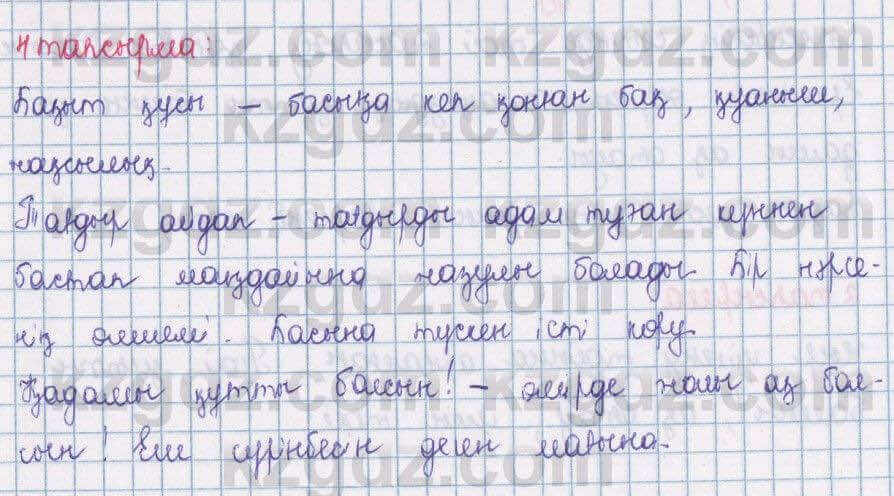 4 тапсырма:
Бақыт құсы – басыңа кеп қонған бақ, қуаныш,
жақсылық.
Тағдыр айдап – тағдырды адам туған күннен
бастап маңдайына жазулы болады. Бір нәрсе-
нің өлшемі. Басына түскен істі көру.
Қадамың құтты болсын! – өмірде жолы ақ бол-
сын! Еш сүрінбесін деген мағына.
kzgdz.com